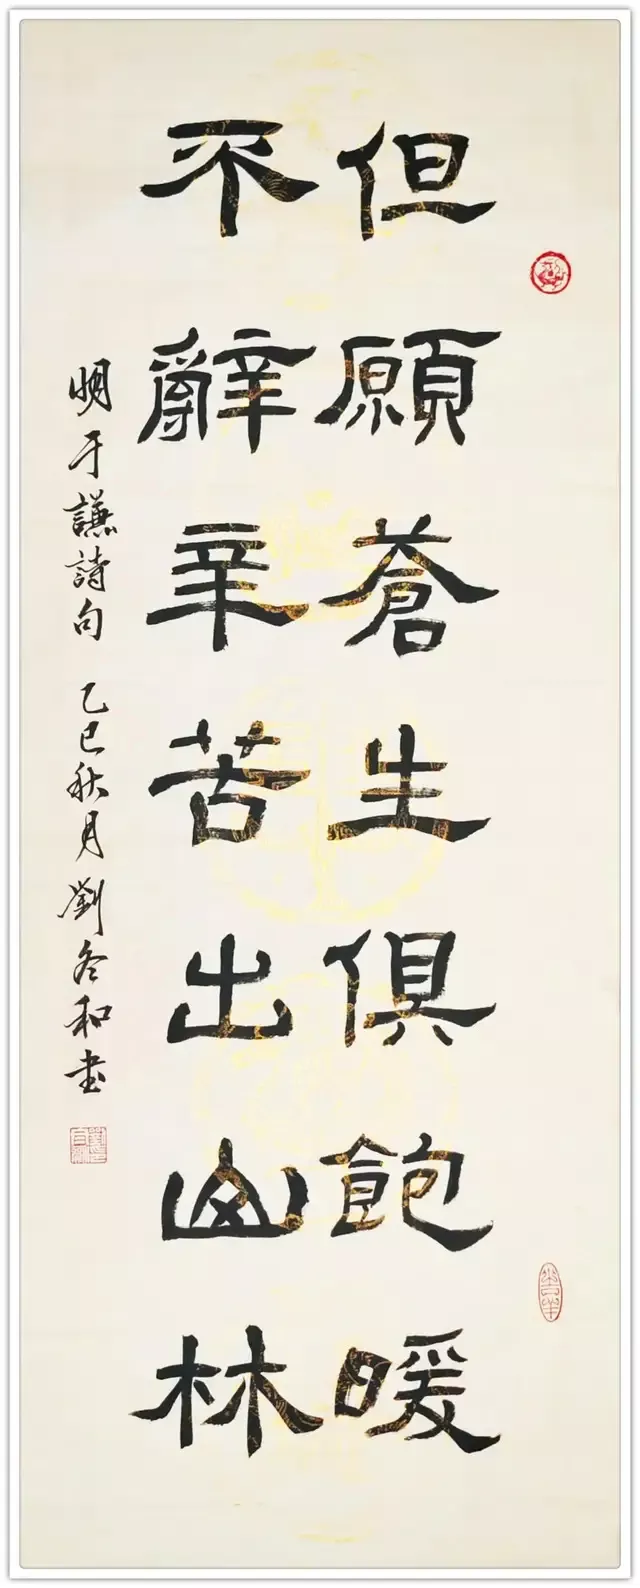 但願蒼生俱飽暖
不辭辛苦出山林
明于謙詩句 乙巳秋月劉冬和書